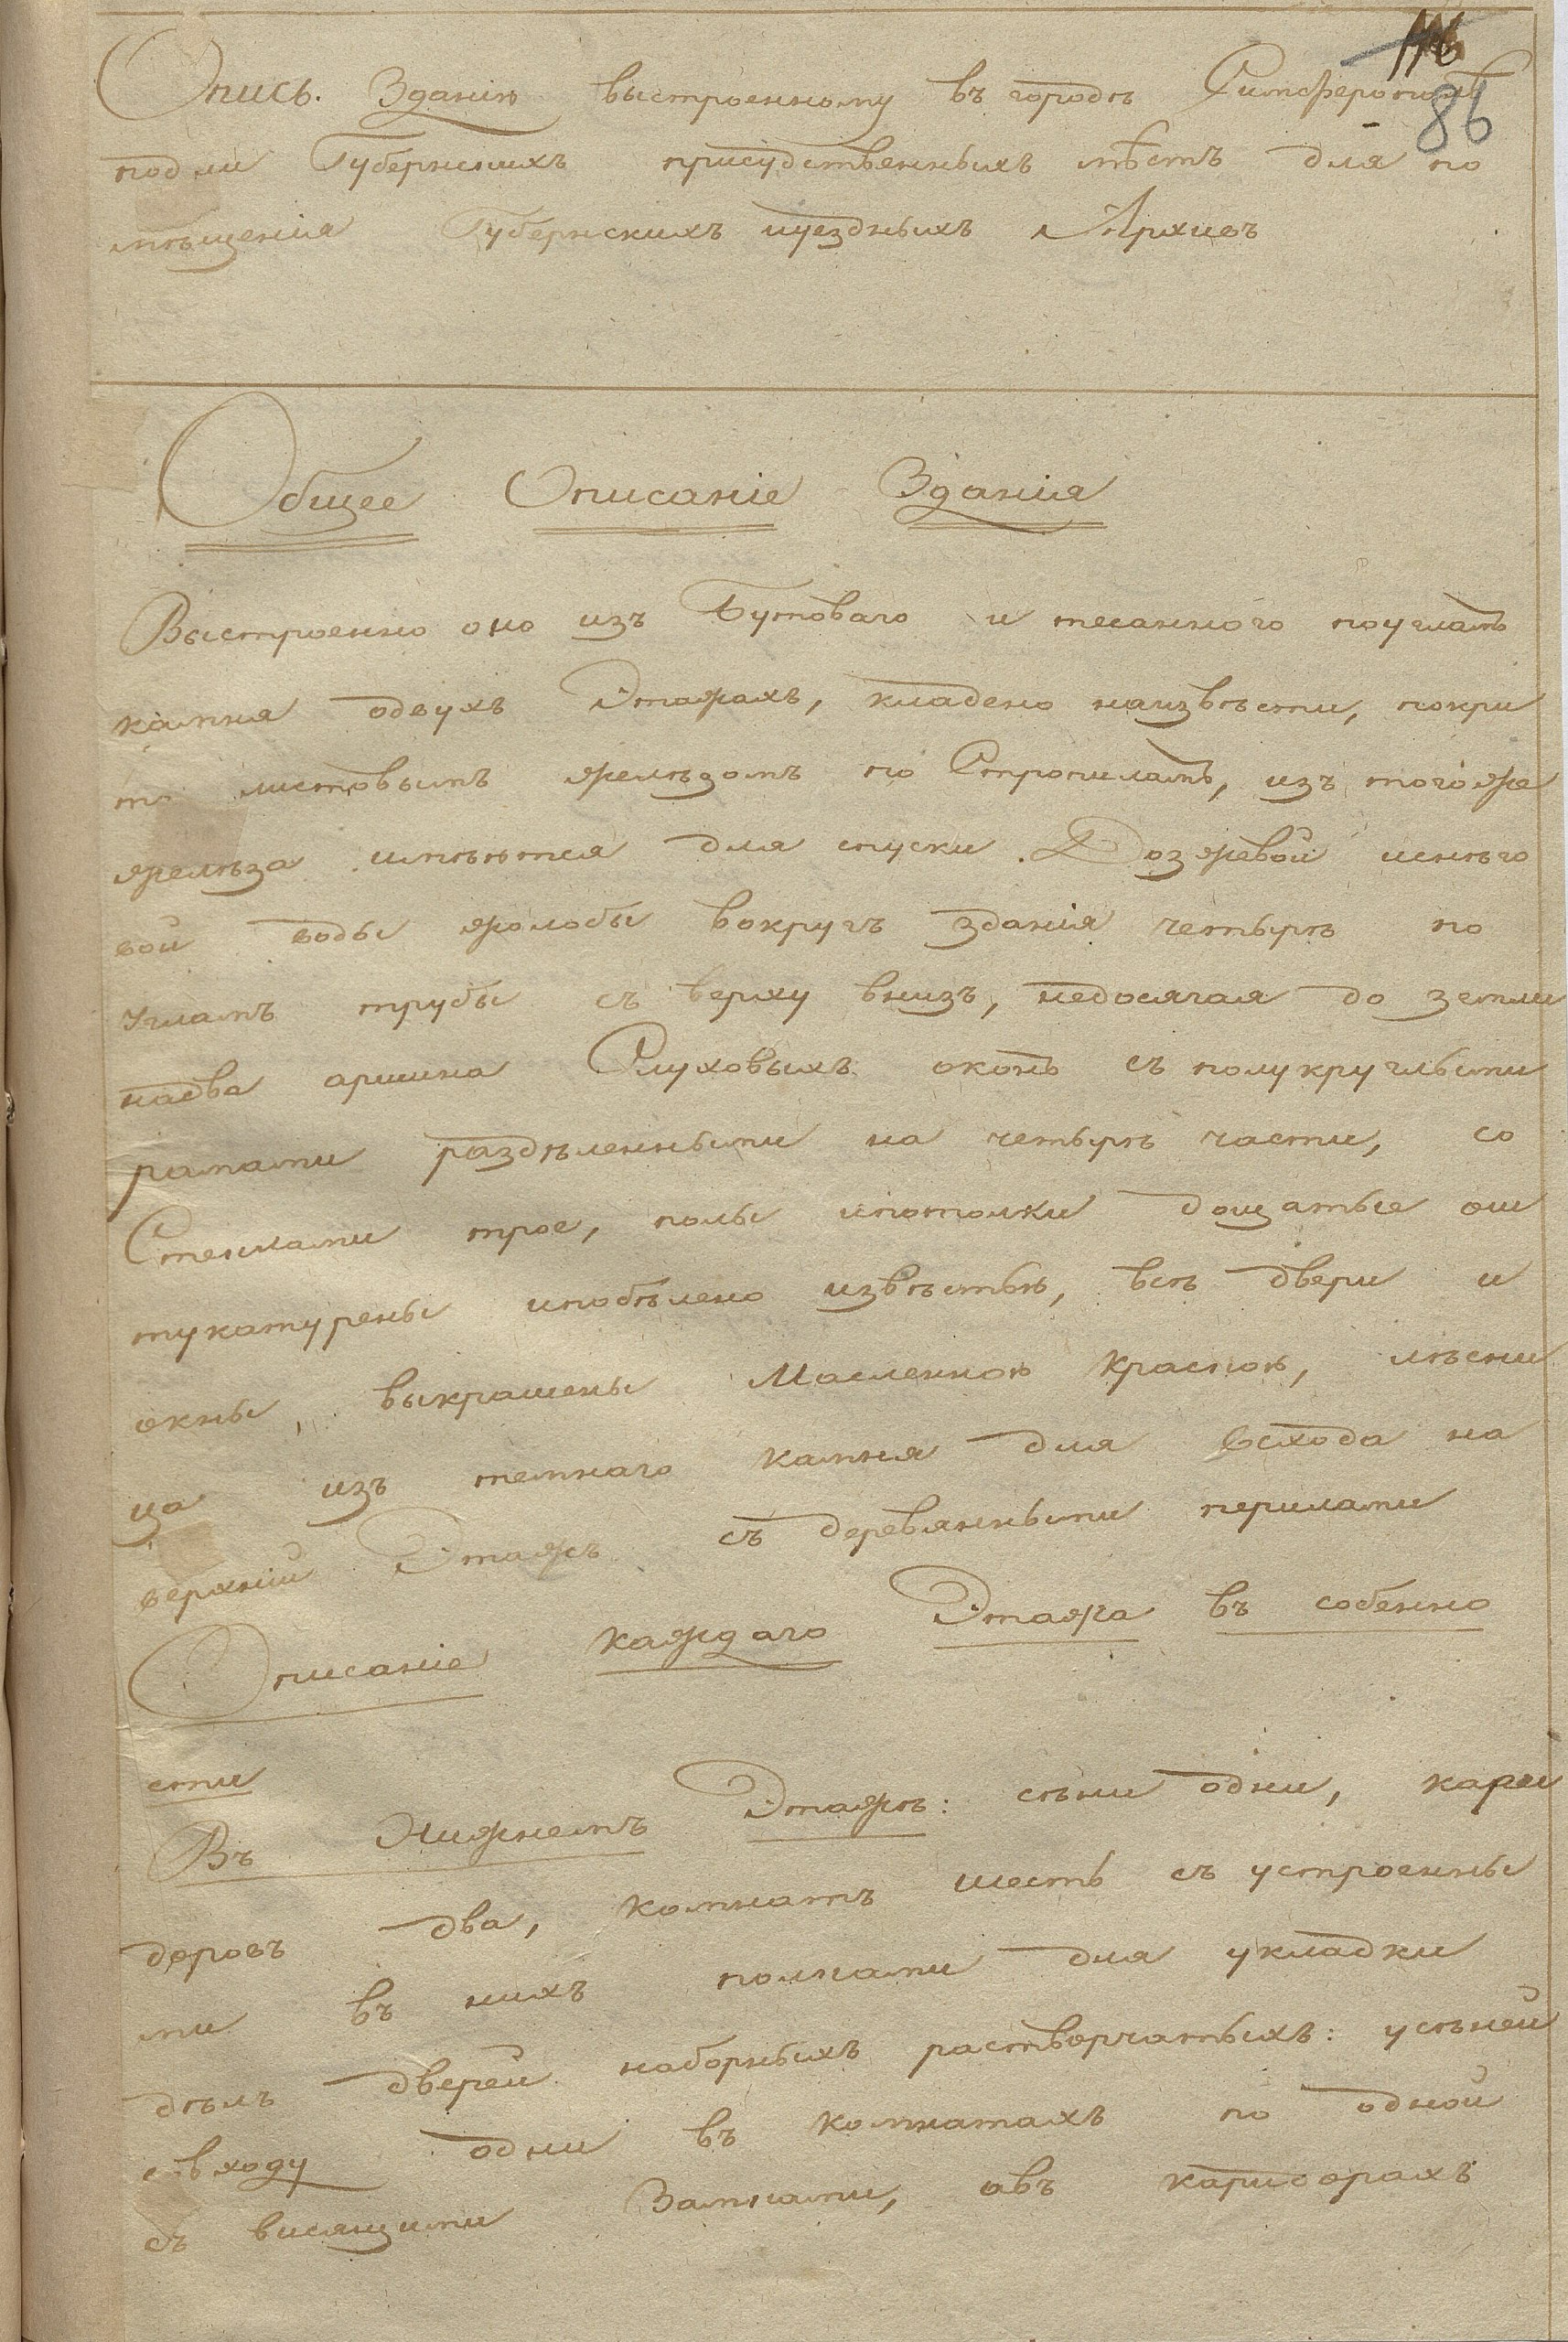 86
Опись. Зданію выстроенному въ городѣ Симферополѣ
подли Губернскихъ присудственныхъ мѣстъ для по
мѣщенія Губернскихъ иуездныхъ Архивъ
Общее Описаніе Зданія
Выстроенно оно изъ Бутоваго и тесанного поугламъ
камня одвухъ Этажахъ, кладено наизвѣсти, покри
то листовымъ желѣзомъ по Стропиламъ, изъ тогоже
желѣза имѣются для спуски Дозжевой иснѣго
вой воды жолобы вокругъ зданія четырѣ по
угламъ трубы съ верху внизъ, недосягая до земли
надва аршина Слуховыхъ оконъ съ полукруглыми
рамами раздѣленными на четырѣ части, со
Стеклами трое, полы ипотолки дощатые ош
тукатурены ипобѣлено извѣстью, всѣ двери и
окны выкрашены Масленною краскою, лѣсни
ца изъ темнаго камня для всхода на
верхній Этажъ съ деревянными перилами
Описаніе каждаго Этажа въ собенно
сти
Въ Нижнемъ Этажѣ: сѣни одни, кари
доровъ два, комнатъ шесть съ устроенны
ми въ нихъ полками для укладки
дѣлъ дверей наборныхъ растворчатыхъ: усѣней
свходу одни въ комнатахъ по одной
съ висящими Замками, авъ каридорахъ